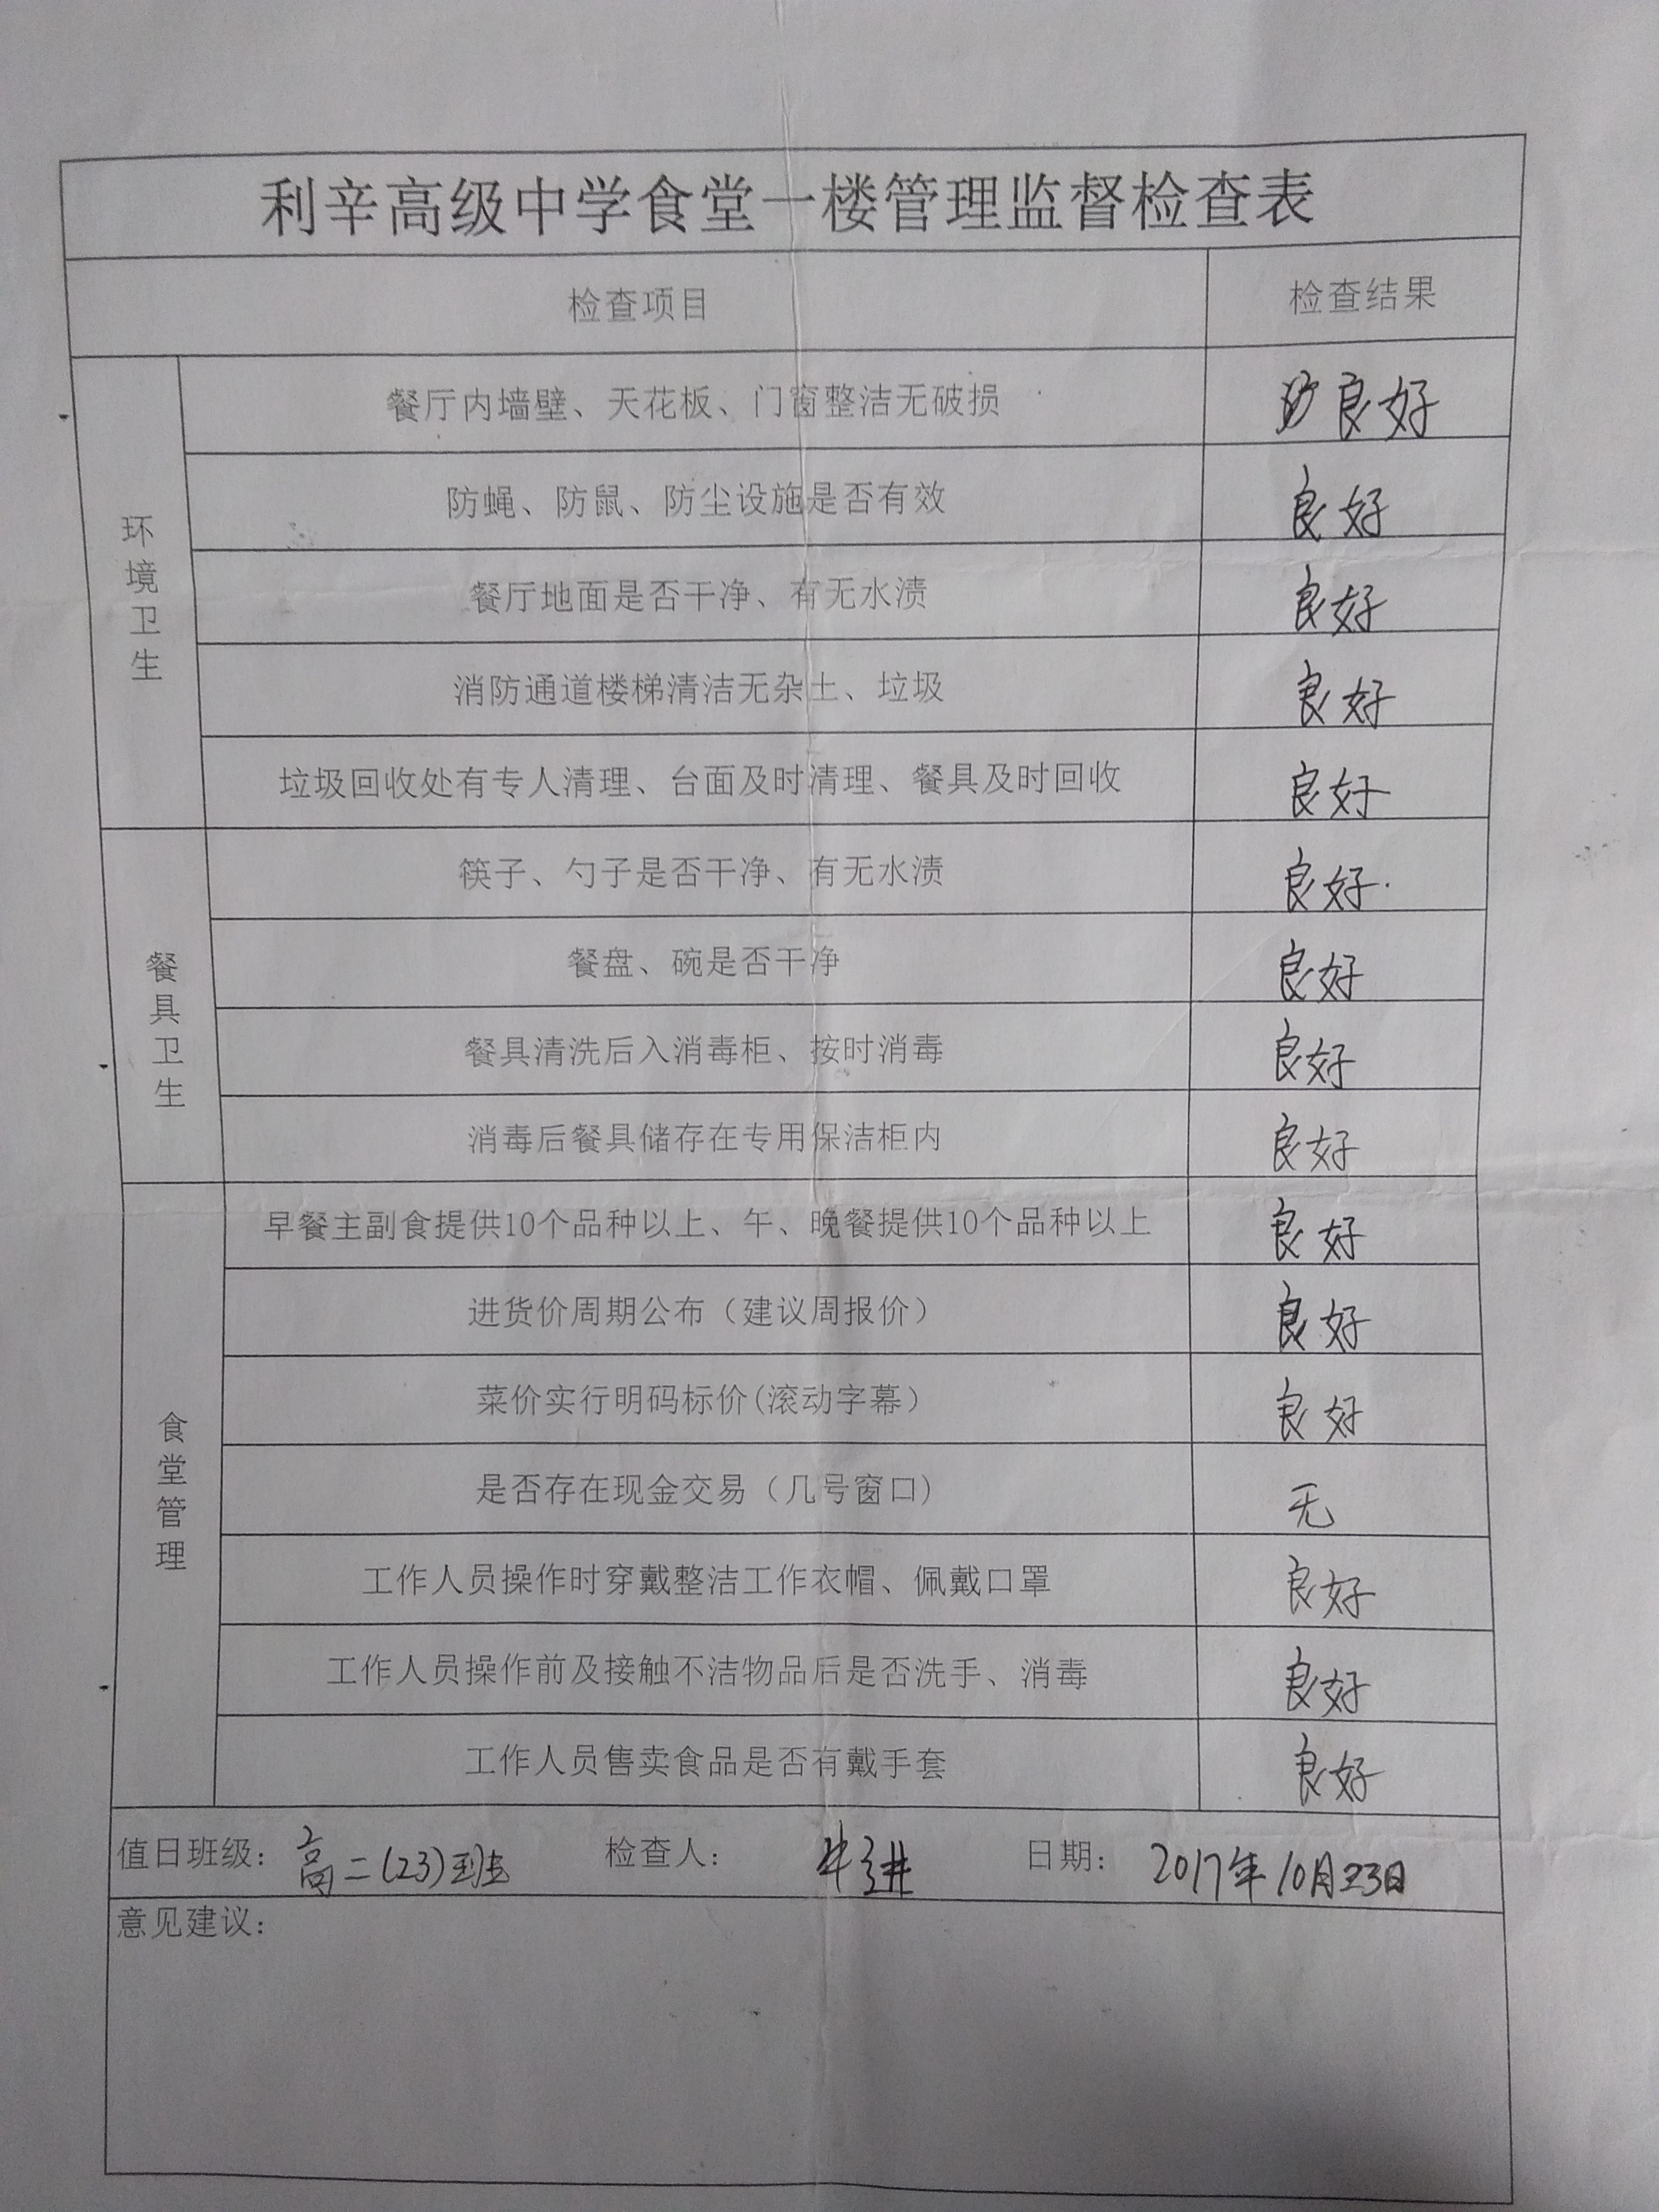 利辛高级中学食堂一楼管理监督检查表
检查项目 检查结果
环境卫生
餐厅内墙壁、天花板、门窗整洁无破损 良好
防蝇、防鼠、防尘设施是否有效 良好
餐厅地面是否干净、有无水渍 良好
消防通道楼梯清洁无杂土、垃圾 良好
垃圾回收处有专人清理、台面及时清理、餐具及时回收 良好
餐具卫生
筷子、勺子是否干净、有无水渍 良好
餐盘、碗是否干净 良好
餐具清洗后入消毒柜、按时消毒 良好
消毒后餐具储存在专用保洁柜内 良好
食堂管理
早餐主副食提供10个品种以上、午、晚餐提供10个品种以上 良好
进货价周期公布（建议周报价） 良好
菜价实行明码标价(滚动字幕） 良好
是否存在现金交易（几号窗口） 无
工作人员操作时穿戴整洁工作衣帽、佩戴口罩 良好
工作人员操作前及接触不洁物品后是否洗手、消毒 良好
工作人员售卖食品是否有戴手套 良好
值日班级：高二(23)班 检查人： 日期：2017年10月23日
意见建议：